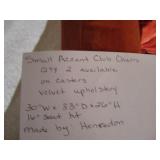 Small Accent Club Chairs
QTY 2 available
on casters
velvet upholstery
30"W x 33"D x 26"H
16" seat ht
Made by Henredon